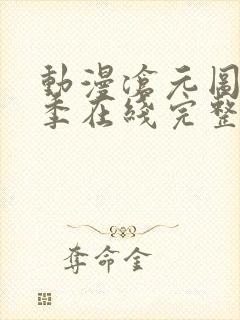 動漫滄元圖
季在綫完整
奪命金